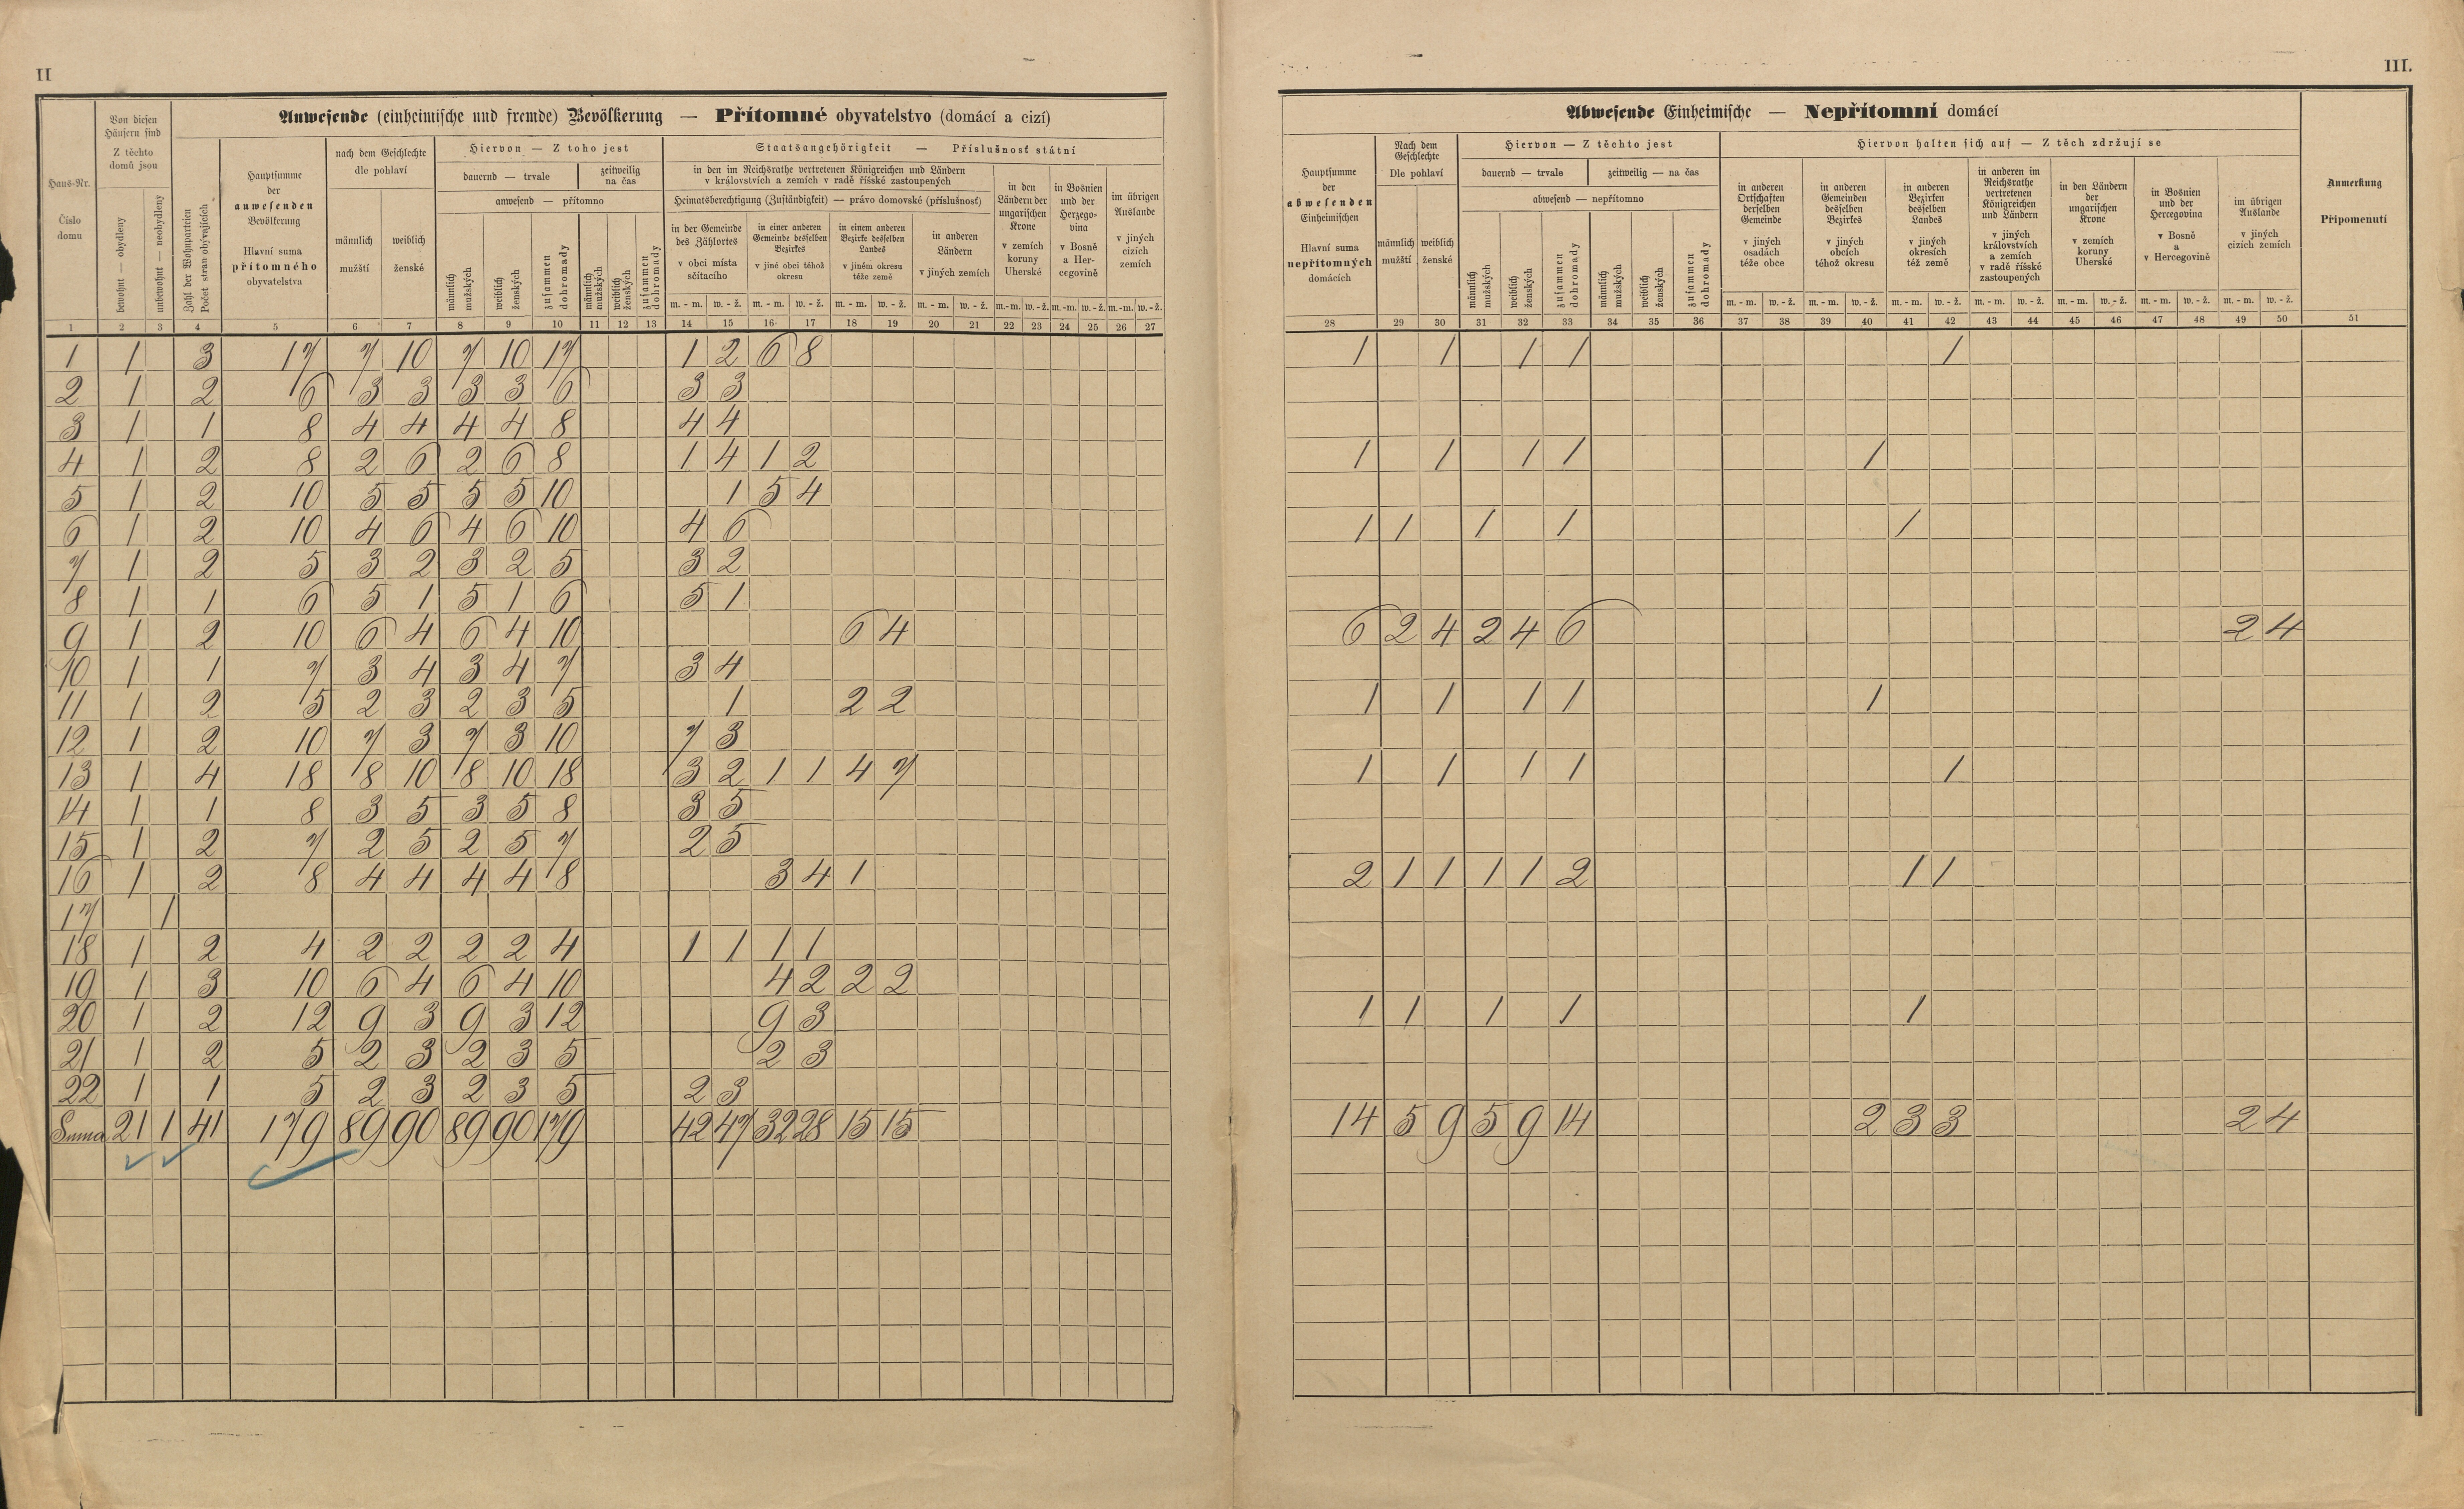 II
III.
Anwesende (einheimische und fremde) Bevölkerung — Přítomné obyvatelstvo (domácí a cizí)
Haus-Nr.
Číslo domu
Von diesen Häusern sind
Z těchto domů jsou
bewohnt — obydleny
unbewohnt — neobydleny
Zahl der Wohnparteien
Počet stran obývajících
Hauptsumme der anwesenden Bevölkerung
Hlavní suma přítomného obyvatelstva
nach dem Geschlechte
dle pohlaví
männlich mužští
weiblich ženské
Hiervon — Z toho jest
dauernd — trvale
zeitweilig na čas
anwesend — přítomno
männlich mužských
weiblich ženských
zusammen dohromady
männlich mužských
weiblich ženských
zusammen dohromady
Staatsangehörigkeit — Příslušnosť státní
in den im Reichsrathe vertretenen Königreichen und Ländern
v královstvích a zemích v radě říšské zastoupených
Heimatsberechtigung (Zuständigkeit) — právo domovské (příslušnosť)
in der Gemeinde des Zählortes
v obci místa sčítacího
in einer anderen Gemeinde desselben Bezirkes
v jiné obci téhož okresu
in einem anderen Bezirke desselben Landes
v jiném okresu téže země
in anderen Ländern
v jiných zemích
in den Ländern der ungarischen Krone
v zemích koruny Uherské
in Bosnien und der Herzegovina
v Bosně a Hercegovině
im übrigen Auslande
v jiných cizích zemích
m. - m. w. - ž. m. - m. w. - ž. m. - m. w. - ž. m. - m. w. - ž. m.-m. w.-ž. m.-m. w.-ž. m.-m. w.-ž.
1 2 3 4 5 6 7 8 9 10 11 12 13 14 15 16 17 18 19 20 21 22 23 24 25 26 27
Abwesende Einheimische — Nepřítomní domácí
Hauptsumme der abwesenden Einheimischen
Hlavní suma nepřítomných domácích
Nach dem Geschlechte
Dle pohlaví
männlich mužští
weiblich ženské
Hiervon — Z těchto jest
dauernd — trvale
zeitweilig — na čas
abwesend — nepřítomno
männlich mužských
weiblich ženských
zusammen dohromady
männlich mužských
weiblich ženských
zusammen dohromady
Hiervon halten sich auf — Z těch zdržují se
in anderen Ortschaften derselben Gemeinde
v jiných osadách téže obce
in anderen Gemeinden desselben Bezirkes
v jiných obcích téhož okresu
in anderen Bezirken desselben Landes
v jiných okresích též země
in anderen im Reichsrathe vertretenen Königreichen und Ländern
v jiných královstvích a zemích v radě říšské zastoupených
in den Ländern der ungarischen Krone
v zemích koruny Uherské
in Bosnien und der Hercegovina
v Bosně a v Hercegovině
im übrigen Auslande
v jiných cizích zemích
Anmerkung
Připomenutí
m. - m. w. - ž. m. - m. w. - ž. m. - m. w. - ž. m. - m. w. - ž. m. - m. w. - ž. m. - m. w. - ž. m. - m. w. - ž.
28 29 30 31 32 33 34 35 36 37 38 39 40 41 42 43 44 45 46 47 48 49 50 51
1 1 3 17 7 10 7 10 17 1 2 6 8 1 1 1 1 1
2 1 2 6 3 3 3 3 6 3 3
3 1 1 8 4 4 4 4 8 4 4
4 1 2 8 2 6 2 6 8 1 4 1 2 1 1 1 1 1
5 1 2 10 5 5 5 5 10 1 5 4
6 1 2 10 4 6 4 6 10 4 6 1 1 1 1 1
7 1 2 5 3 2 3 2 5 3 2
8 1 1 6 5 1 5 1 6 5 1
9 1 2 10 6 4 6 4 10 6 4 6 2 4 2 4 6 2 4
10 1 1 7 3 4 3 4 7 3 4
11 1 2 5 2 3 2 3 5 1 2 2 1 1 1 1 1
12 1 2 10 7 3 7 3 10 7 3
13 1 4 18 8 10 8 10 18 3 2 1 1 4 7 1 1 1 1 1
14 1 1 8 3 5 3 5 8 3 5
15 1 2 7 2 5 2 5 7 2 5
16 1 2 8 4 4 4 4 8 3 4 1 2 1 1 1 1 2 1 1
17 1
18 1 2 4 2 2 2 2 4 1 1 1 1
19 1 3 10 6 4 6 4 10 4 2 2 2
20 1 2 12 9 3 9 3 12 9 3 1 1 1 1 1
21 1 2 5 2 3 2 3 5 2 3
22 1 1 5 2 3 2 3 5 2 3
Suma 21 1 41 179 89 90 89 90 179 42 47 32 28 15 15 14 5 9 5 9 14 2 3 3 2 4